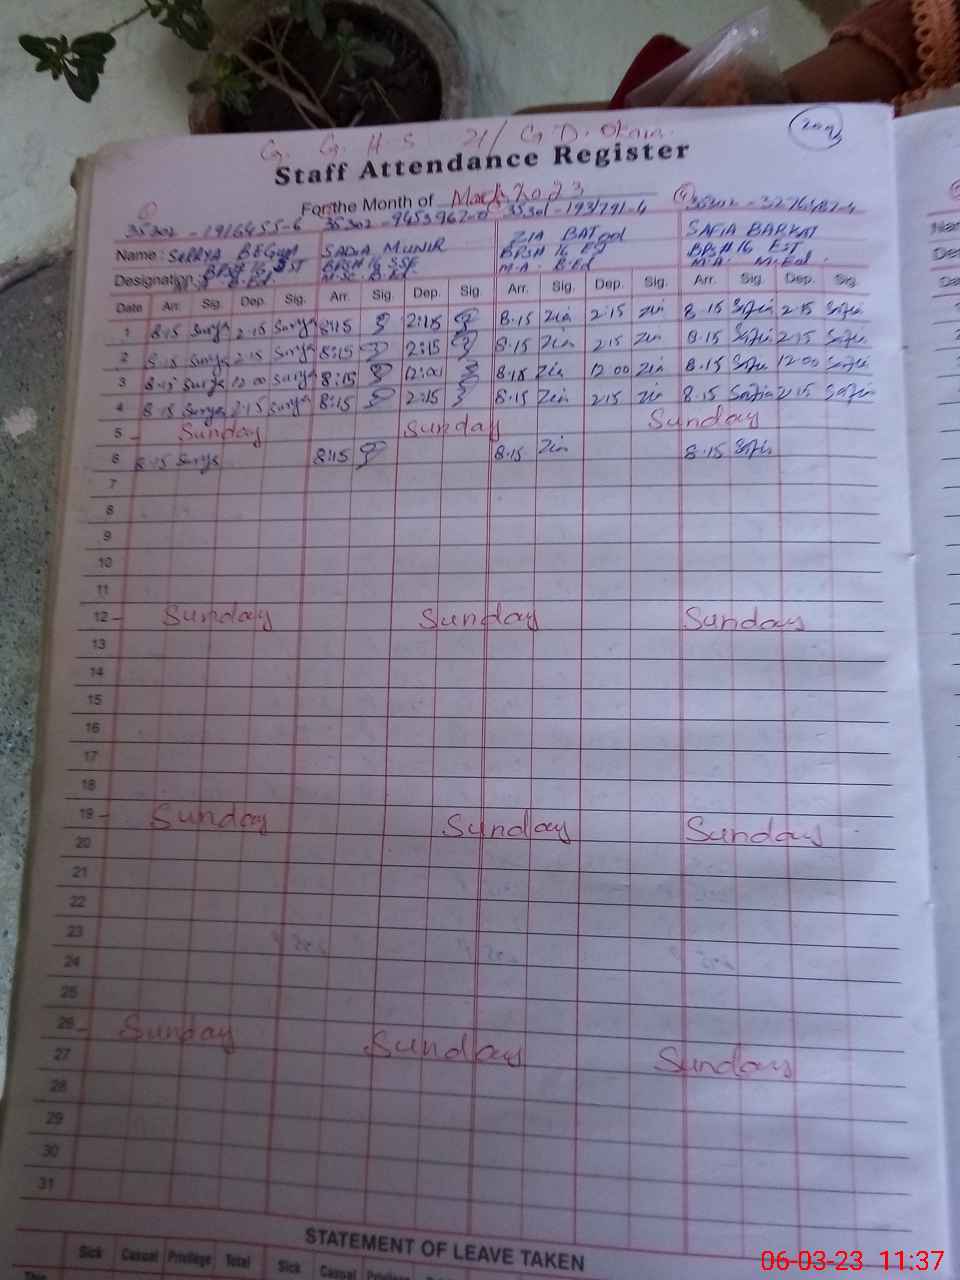 G. G. H. S 21/ G.D. Okara.
Staff Attendance Register
For the Month of March 2023
35302 - 1916455-6 35302 - 9453967-0 35301 - 1937791-4
Name : SURRYA BEGUM SADIA MUNIR ZIA BATOOL SAFIA BARKAT
Designation : BPS# 16 SST BPS# 16 SSE BPS# 16 EST BPS# 16 EST
B.Ed M.Sc. B.Ed M.A. B.Ed M.A. M.Ed.
Date Arr. Sig. Dep. Sig. Arr. Sig. Dep. Sig. Arr. Sig. Dep. Sig. Arr. Sig. Dep. Sig.
1 8.15 Surya 2.15 Surya 8:15 2:15 8.15 Zia 2.15 Zia 8.15 Safia 2.15 Safia
2 8.15 Surya 2.15 Surya 8:15 2:15 8.15 Zia 2.15 Zia 8.15 Safia 2.15 Safia
3 8.15 Surya 12.00 Surya 8:15 8.15 Zia 12.00 Zia 8.15 Safia 12.00 Safia
4 8.15 Surya 2.15 Surya 8:15 2:15 8.15 Zia 2.15 Zia 8.15 Safia 2.15 Safia
5 - Sunday Sunday Sunday
6 8.15 Surya 8:15 8.15 Zia 8.15 Safia
7
8
9
10
11
12 - Sunday Sunday Sunday
13
14
15
16
17
18
19 - Sunday Sunday Sunday
20
21
22
23
24
25
26 - Sunday Sunday Sunday
27
28
29
30
31
STATEMENT OF LEAVE TAKEN
Sick Casual Privilege Total Sick Casual
06-03-23 11:37